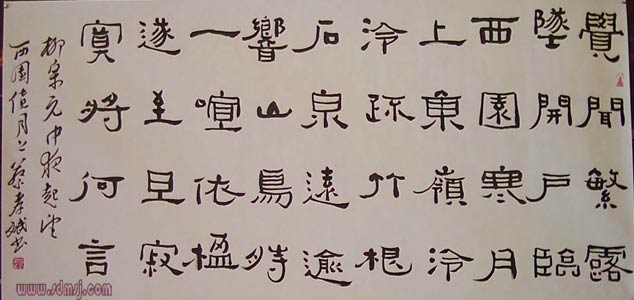 覺聞繁露
墜開戶臨
西園寒月
上東嶺泠
泠疏竹根
石泉遠逾
響山鳥時
一喧依楹
遂至旦寂
寞將何言
柳宗元中夜起望
西園值月上
www.sdmsj.com